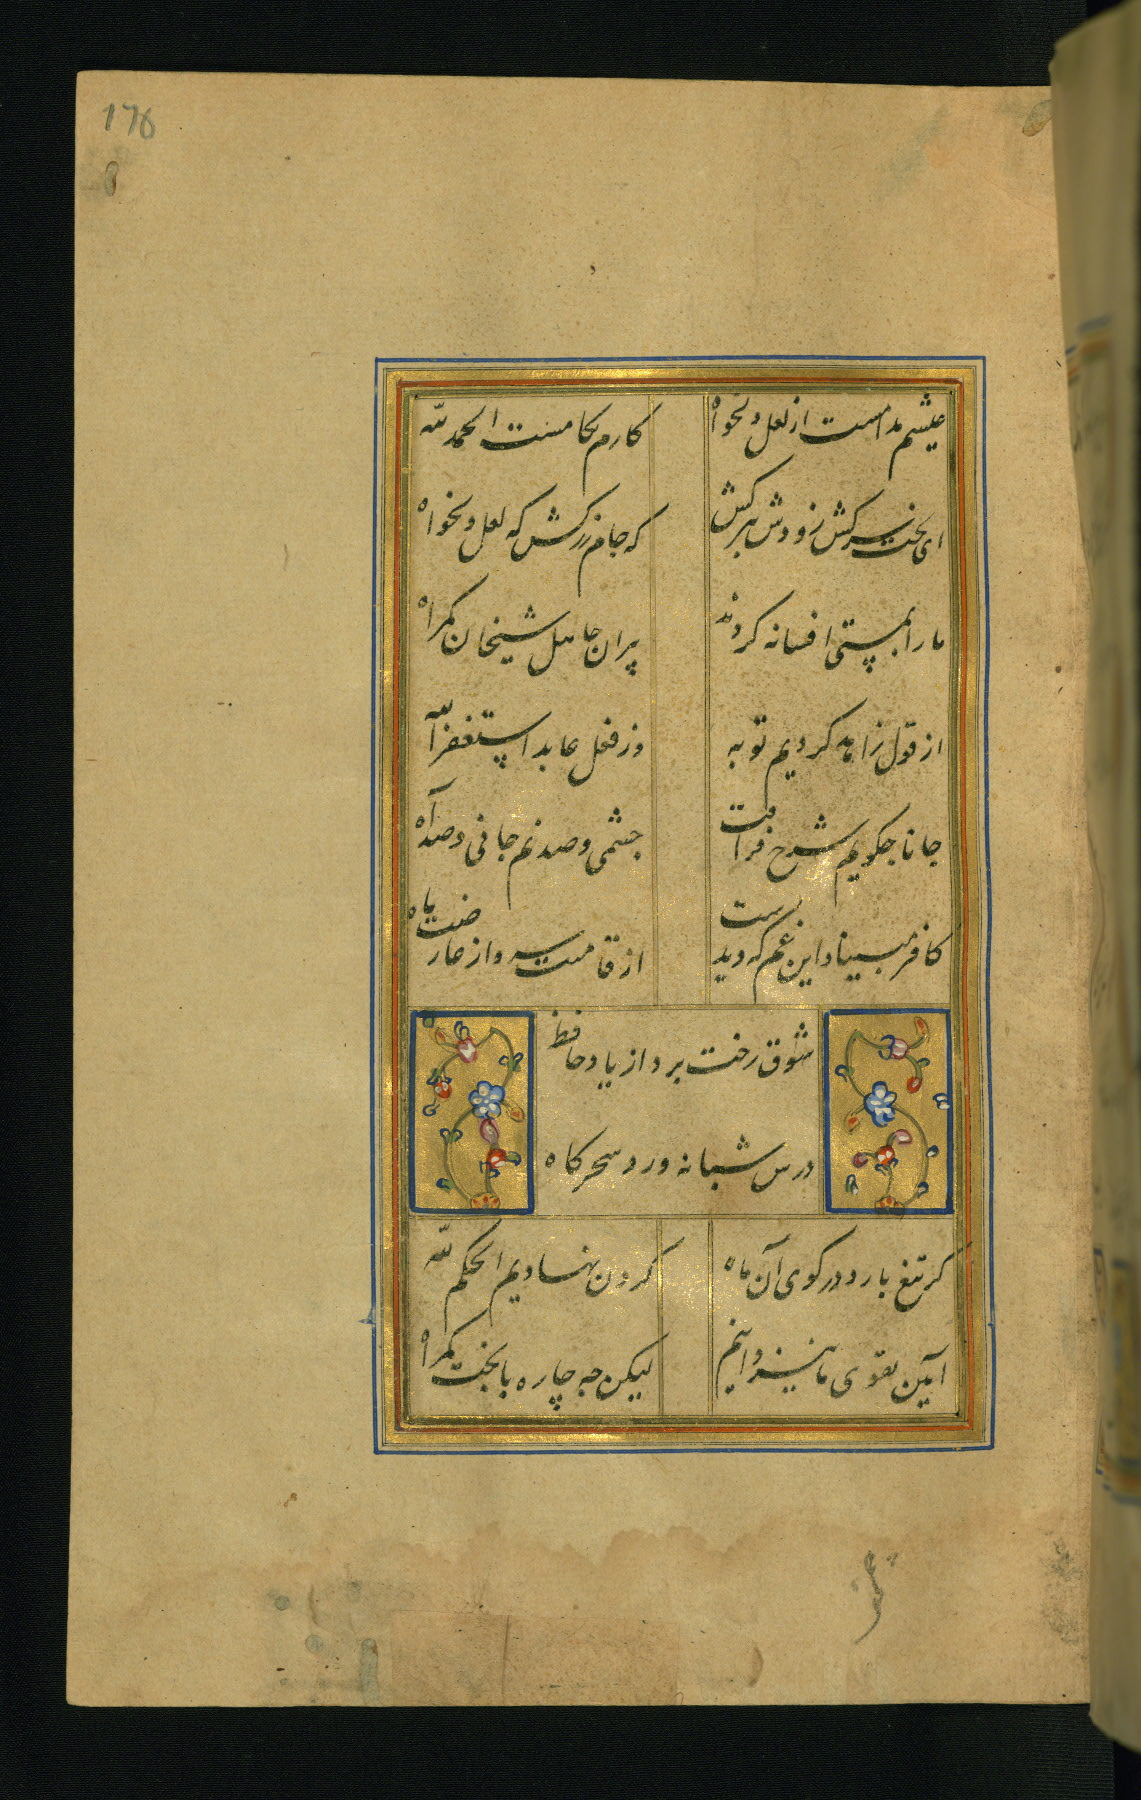 176
عیشم مدامست از لعل دلخواه
کارم بکامست الحمد لله
ای بخت سرکش زودش ببر کش
که جام زر کش که لعل دلخواه
ما را بمستی افسانه کردند
پیران جاهل شیخان کمراه
از قول زاهد کردیم توبه
وز فعل عابد استغفر الله
جانا چکویم شرح فراقت
چشمی و صد نم جانی و صد آه
کافر مبیناد این غم که دیدست
از قامتت سرو از عارضت ماه
شوق رخت برد از یاد حافظ
درس شبانه ورد سحرکاه
کر تیغ بارد در کوی آن ماه
کردن نهادیم الحکم لله
آیین تقوی ما نیز دانیم
لیکن چه چاره با بخت کمراه